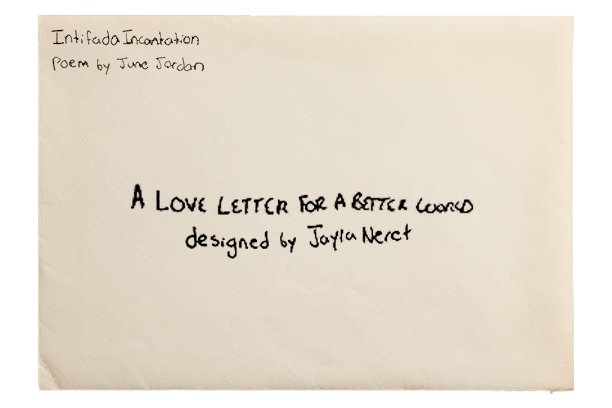 Intifada Incantation
Poem by June Jordan
A LOVE LETTER FOR A BETTER WORLD
designed by Jayla Neret